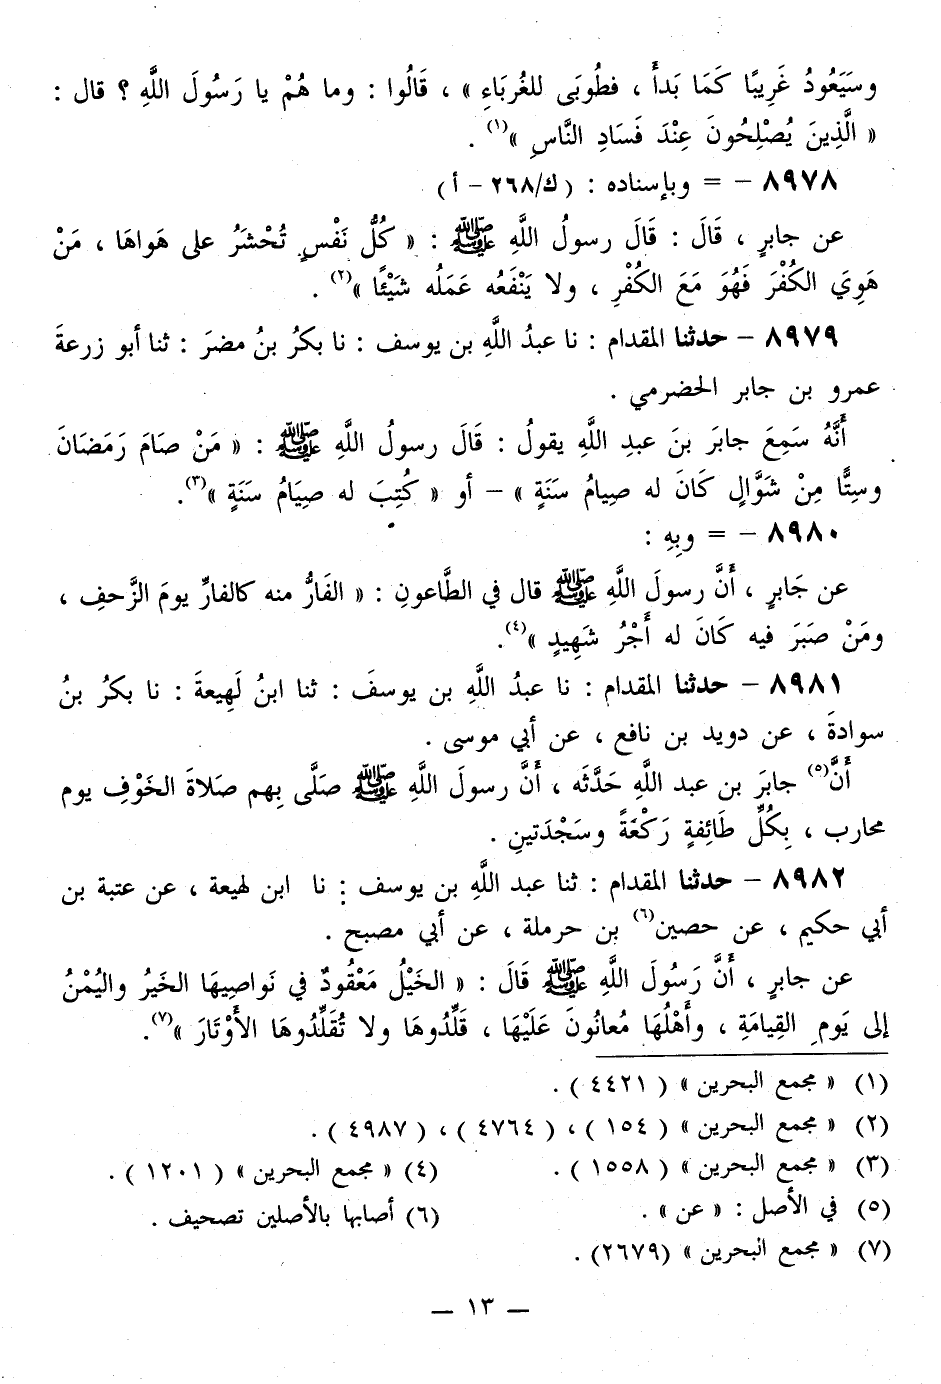 وسَيَعُودُ غَرِيبًا كَمَا بَدأَ ، فطُوبَى للغُربَاءِ » ، قَالُوا : وما هُمْ يا رَسُولَ اللَّهِ ؟ قال :
« الَّذِينَ يُصْلِحُونَ عِنْدَ فَسَادِ النَّاسِ »(١) .
٨٩٧٨ – = وبإسناده : ( ك/٢٦٨ – أ )
عن جابرٍ ، قَالَ : قَالَ رسولُ اللَّهِ ﷺ : « كُلُّ نَفْسٍ تُحْشَرُ على هَواهَا ، مَنْ
هَوِيَ الكُفْرَ فَهُوَ مَعَ الكُفْرِ ، ولا يَنْفَعُه عَمَلُه شَيْئًا »(٢) .
٨٩٧٩ – حدثنا المقدام : نا عبدُ اللَّهِ بن يوسف : نا بكرُ بنُ مضرَ : ثنا أبو زرعةَ
عمرو بن جابر الحضرمي .
أَنَّهُ سَمِعَ جابرَ بنَ عبدِ اللَّهِ يقولُ : قَالَ رسولُ اللَّهِ ﷺ : « مَنْ صَامَ رَمَضَانَ
وسِتًّا مِنْ شَوَّالٍ كَانَ له صِيامُ سَنَةٍ » – أو « كُتِبَ له صِيَامُ سَنَةٍ »(٣).
٨٩٨٠ – = وبِهِ :
عن جَابرٍ ، أَنَّ رسولَ اللَّهِ ﷺ قال في الطَّاعونِ : « الفَارُّ منه كالفارِّ يومَ الزَّحفِ ،
ومَنْ صَبَرَ فيه كَانَ له أَجْرُ شَهِيدٍ »(٤).
٨٩٨١ – حدثنا المقدام : نا عبدُ اللَّهِ بن يوسفَ : ثنا ابنُ لَهِيعةَ : نا بكرُ بنُ
سوادةَ ، عن دويد بن نافع ، عن أبي موسى .
أَنَّ(٥) جابرَ بن عبد اللَّهِ حَدَّثَه ، أَنَّ رسولَ اللَّهِ ﷺ صَلَّى بِهم صَلاةَ الخَوْفِ يوم
محارب ، بِكُلِّ طَائِفةٍ رَكْعَةً وسَجْدَتينِ .
٨٩٨٢ – حدثنا المقدام : ثنا عبد اللَّهِ بن يوسف : نا ابن لهيعة ، عن عتبة بن
أبي حكيم ، عن حصين(٦) بن حرملة ، عن أبي مصبح .
عن جابرٍ ، أَنَّ رَسُولَ اللَّهِ ﷺ قَالَ : « الخَيْلُ مَعْقُودٌ في نَواصِيهَا الخَيرُ واليُمْنُ
إلى يَومِ القِيامَةِ ، وأَهْلُهَا مُعانُونَ عَلَيْهَا ، قَلِّدُوهَا ولا تُقَلِّدُوهَا الأَوْتَارَ »(٧).
(١) « مجمع البحرين » ( ٤٤٢١ ) .
(٢) « مجمع البحرين » ( ١٥٤ ) ، ( ٤٧٦٤ ) ، ( ٤٩٨٧ ) .
(٣) « مجمع البحرين » ( ١٥٥٨ ) . (٤) « مجمع البحرين » ( ١٢٠١ ) .
(٥) في الأصل : « عن » . (٦) أصابها بالأصلين تصحيف .
(٧) « مجمع البحرين » (٢٦٧٩) .
— ١٣ —